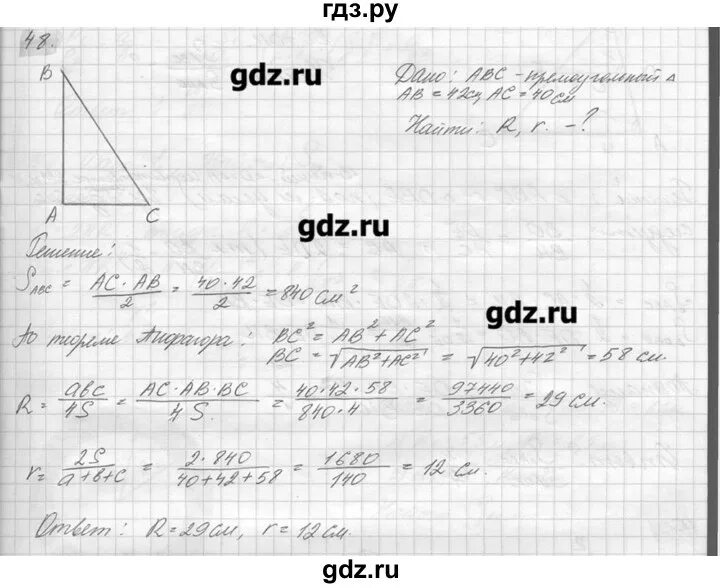 гдз.ру
48.
B
gdz.ru
Дано: ABC - прямоугольный Δ
AB = 42см, AC = 40 см
Найти: R, r. - ?
A
C
gdz.ru
Решение:
S_ABC = AC · AB / 2 = 40 · 42 / 2 = 840 см²
gdz.ru
По теореме Пифагора: BC² = AB² + AC²
BC = √(AB² + AC²) = √(40² + 42²) = 58 см.
R = abc / 4S = AC · AB · BC / 4S. = 40 · 42 · 58 / 840 · 4 = 97440 / 3360 = 29 см.
r = 2S / a+b+c = 2 · 840 / 40+42+58 = 1680 / 140 = 12 см.
Ответ: R = 29 см, r = 12 см.
gdz.ru